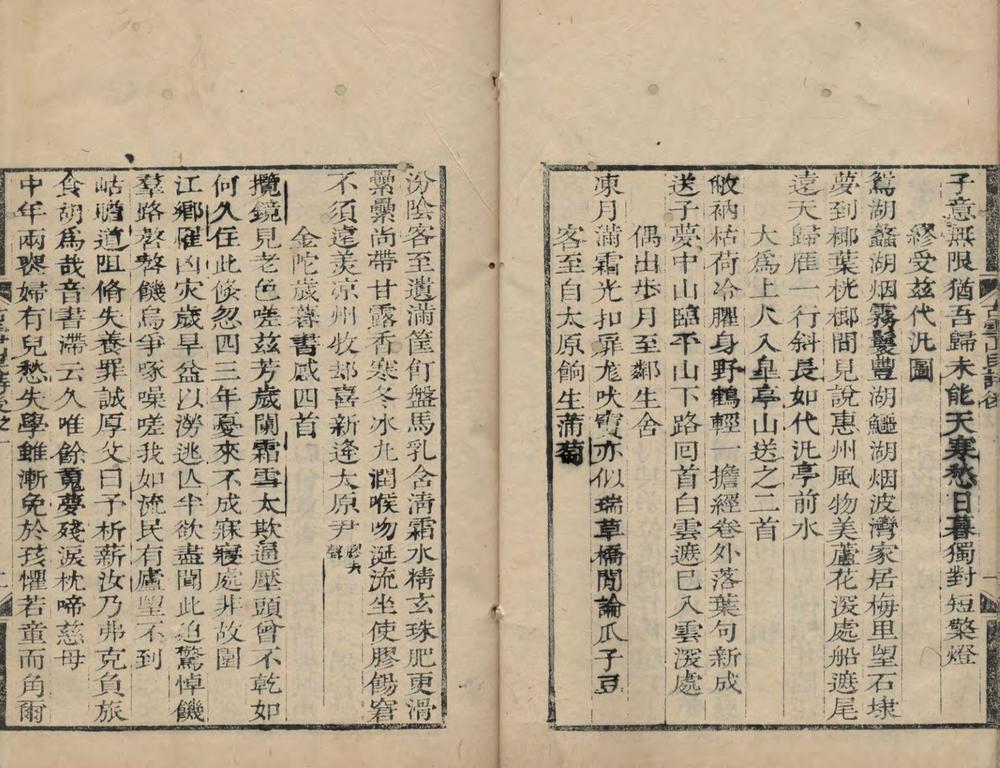 子意無限猶吾歸未能天寒愁日暮獨對短檠燈
繆受茲代汎圖
鴛湖蠡湖烟霧鬟豐湖鱷湖烟波灣家居梅里望石埭
夢到椰葉桄榔間見說惠州風物美蘆花深處船遮尾
遠天歸雁一行斜長如代汎亭前水
大為上人入皐亭山送之二首
敝衲枯荷冷臞身野鶴輕一擔經卷外落葉句新成
送子夢中山臨平山下路回首白雲遮已入雲深處
偶出步月至鄰生舍
凍月滿霜光扣扉尨吠竇亦似瑞草橋閒論瓜子豆
客至自太原餉生蒲萄
汾陰客至遺滿筐飣盤馬乳含清霜水精玄珠肥更滑
纍纍尚帶甘露香寒冬冰丸潤喉吻涎流坐使膠餳窘
不須遠羨凉州牧郄喜新逢太原尹
金陀歲暮書感四首
攬鏡見老色嗟茲芳歲闌霜雪太欺逼壓頭曾不乾如
何久住此倏忽四三年憂來不成寐寢處非故園
江鄉罹凶灾歲旱益以澇逃亾半欲盡聞此迫驚悼饑
羣路嗸嗸饑烏爭啄噪嗟我如流民有廬望不到
岵瞻道阻脩失養罪誠厚父曰予析薪汝乃弗克負旅
食胡為哉音書滯云久唯餘覓夢殘淚枕啼慈母
中年兩喪婦有兒愁失學雖漸免於孩懼若童而角爾